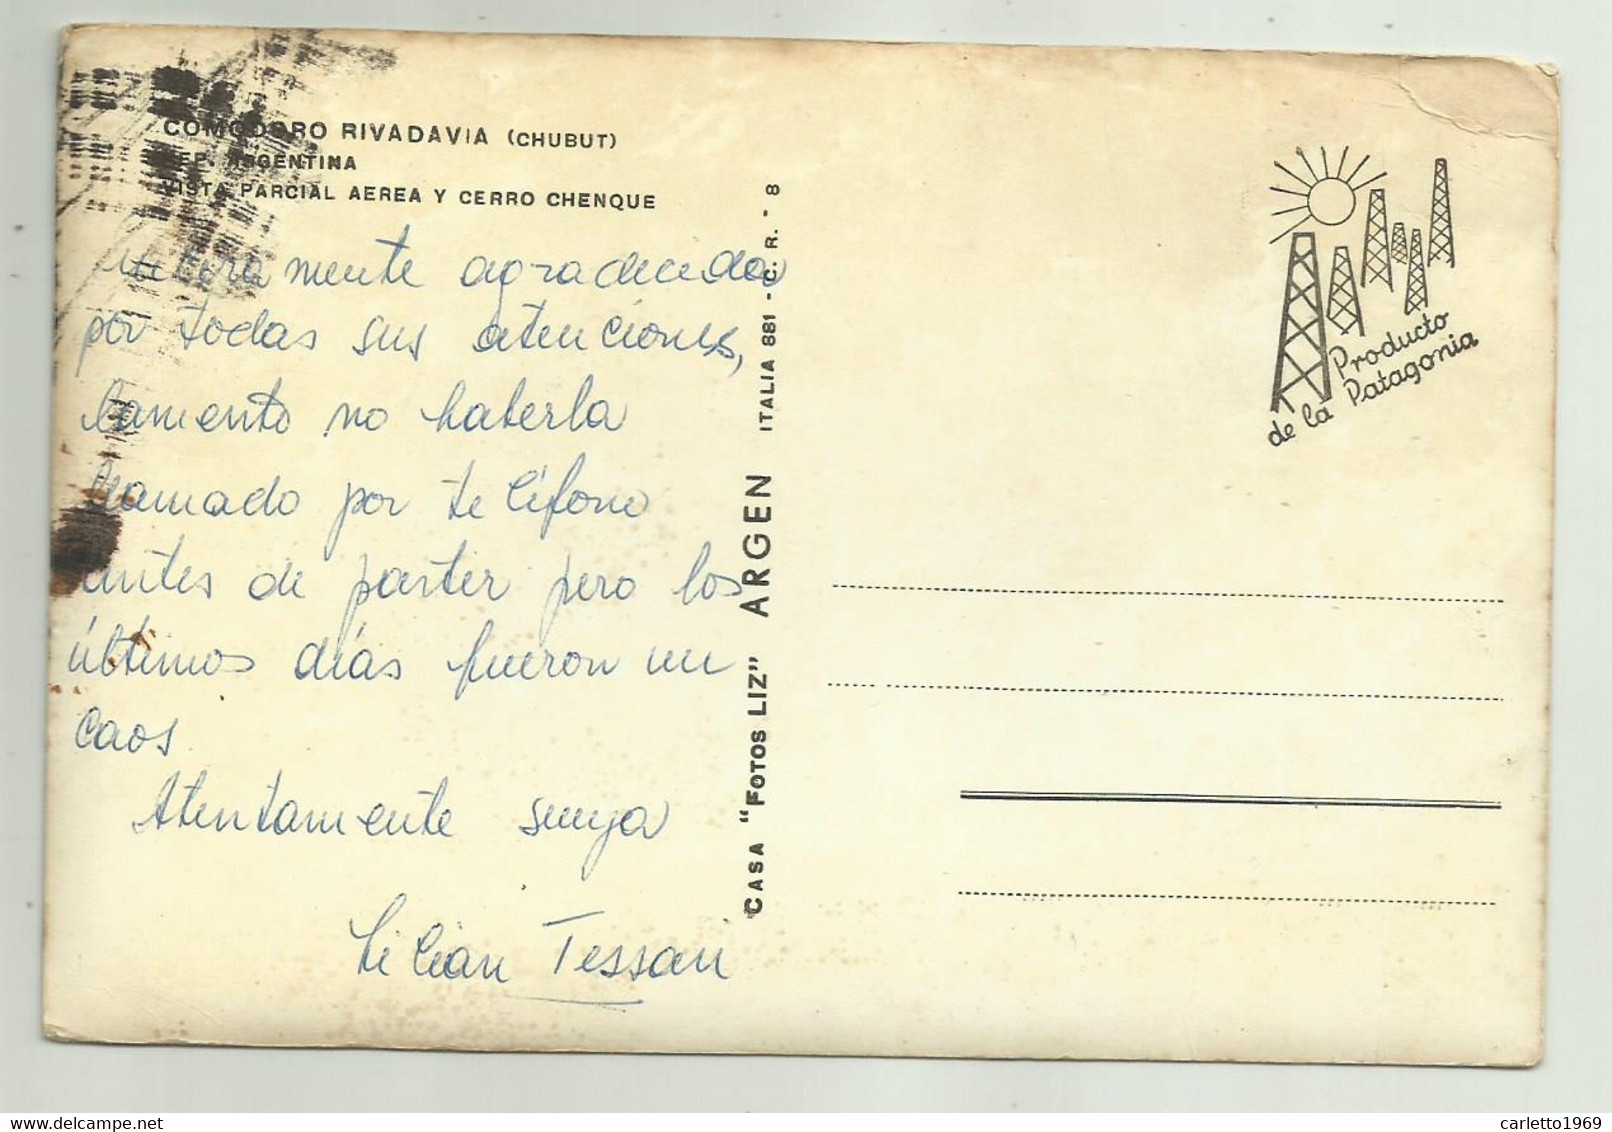 COMODORO RIVADAVIA (CHUBUT)
REP. ARGENTINA
VISTA PARCIAL AEREA Y CERRO CHENQUE
agradecida
por todas sus atenciones,
lamento no haberla
llamado por teléfono
antes de partir pero los
últimos días fueron un
caos.
Atentamente suya
Lilian Tessari
CASA "FOTOS LIZ" ARGEN ITALIA 881 - C. R. - 8
Producto
de la Patagonia
carletto1969